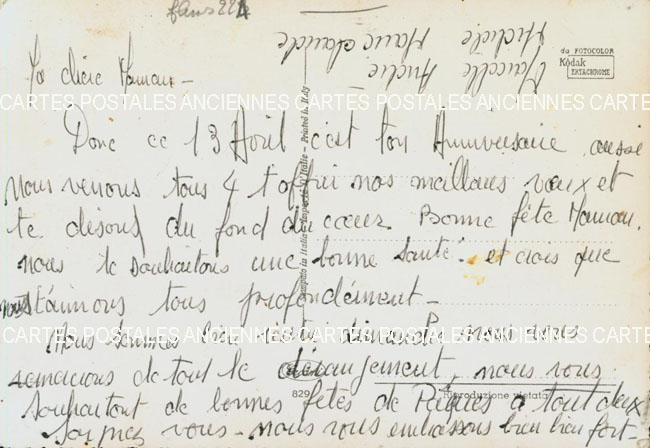 da FOTOCOLOR
Kodak
EKTACHROME
Marcelle André Marie claude
Michèle
chère Maman -
CARTES POSTALES ANCIENNES CARTES POSTALES ANCIENNES CARTES
Donc ce 13 Avril c'est ton Anniversaire aussi
nous venons tous 4 t'offrir nos meilleurs vœux et
te disons du fond du cœur Bonne fête Maman.
nous te souhaitons une bonne santé. et crois que
nous t'aimons tous profondément -
CARTES POSTALES ANCIENNES CARTES POSTALES ANCIENNES CARTES
Nous sommes bien dimanche nous vous
remercions de tout le dérangement, nous vous
souhaitont de bonnes fêtes de Pâques à tout deux
Soignez vous - nous vous embrassons bien bien fort
Stampato in Italia - Imprimé en Italie - Printed in Italy
829
Riproduzione vietata